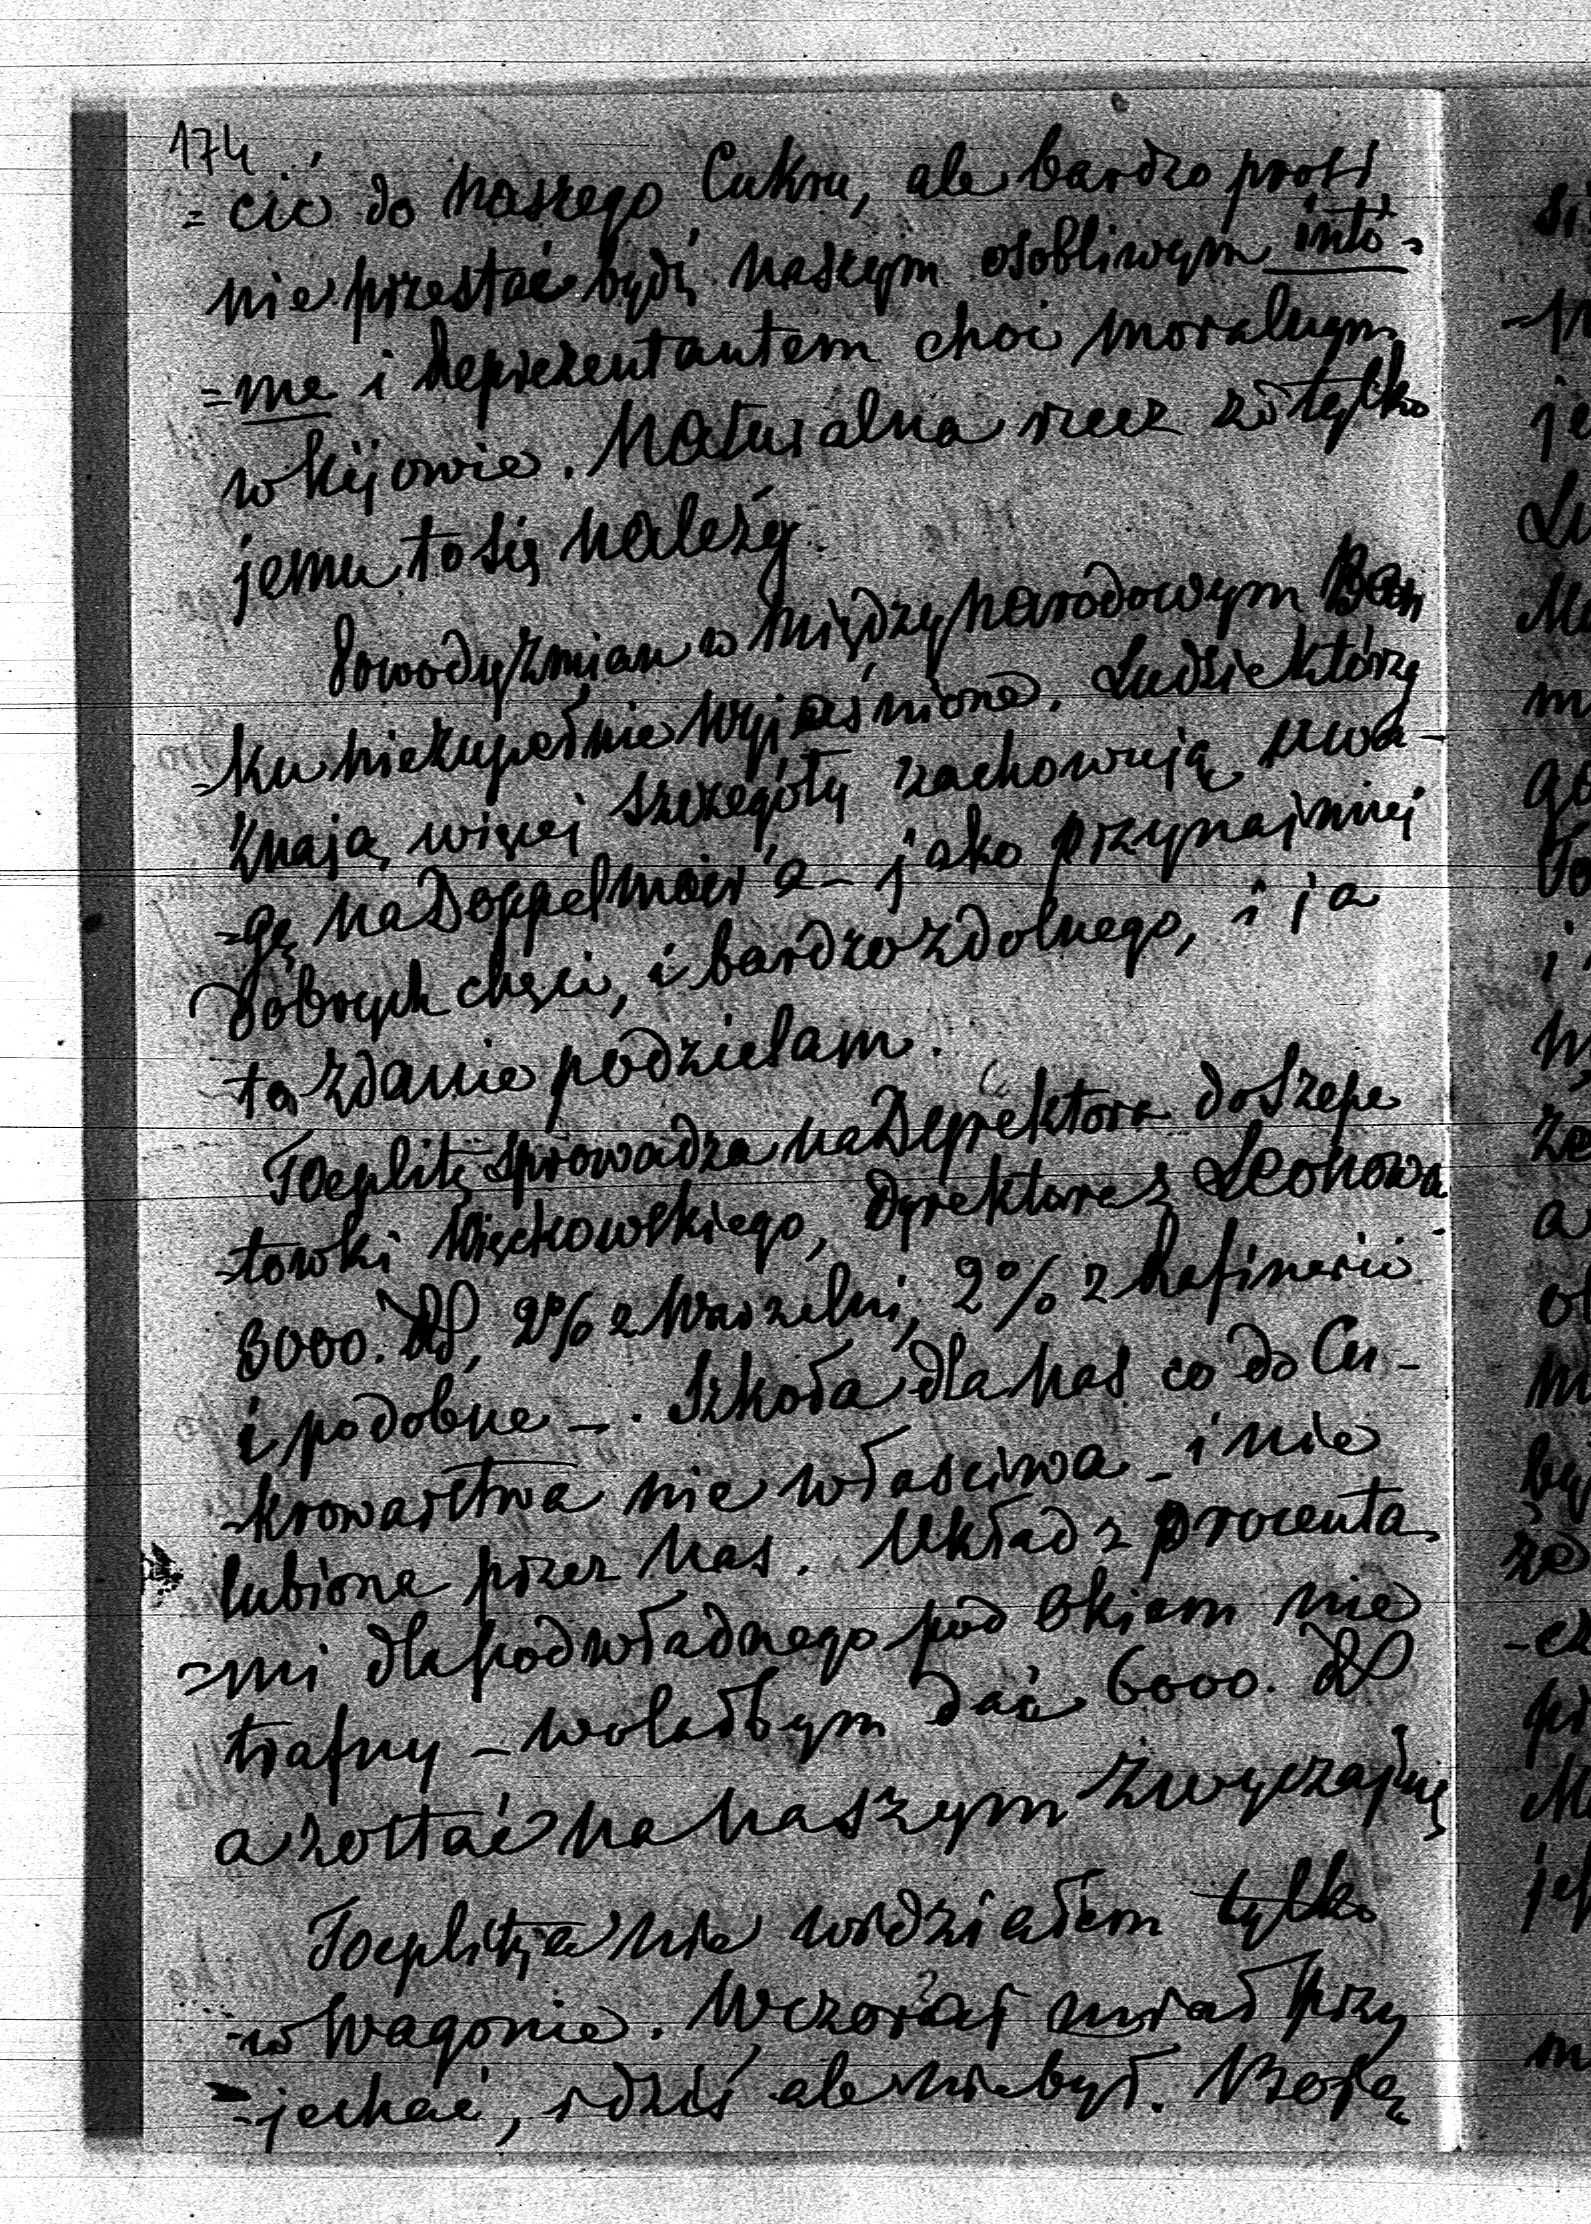 174
= cić do naszego Cukru, ale bardzo prosi
nie przestać być naszym osobliwym into-
=me i Reprezentantem choć moralnym
w Kijowie. Naturalna rzecz że tylko
jemu to się należy.
Powody zmian w Międzynarodowym Ban
-ku niezupełnie wyjaśnione. Ludzie którzy
znają więcej szczegóły zachowują uwa-
-gę na Doppelmair'a - jako przynajmniej
dobrych chęci, i bardzo zdolnego, i ja
to zdanie podzielam.
Toeplitz sprowadza na Dyrektora do Szepe
-towki Więckowskiego, Dyrektora z Leonowa
3000. Rs, 2% z Warzelni, 2% z Rafinerie
i podobne -. Szkoła dla nas co do Cu-
-krowarstwa nie właściwa - i nie
lubiona przez nas. Układ z procenta
=mi dla podwładnego pod Okiem nie
trafny - wolałbym dać 6000. Rs
a zostać na naszym zwyczajny
Toeplitza nie widziałem tylko
-w Wagonie. Wczoraj miał przy
=jechać, i dziś ale nie był.